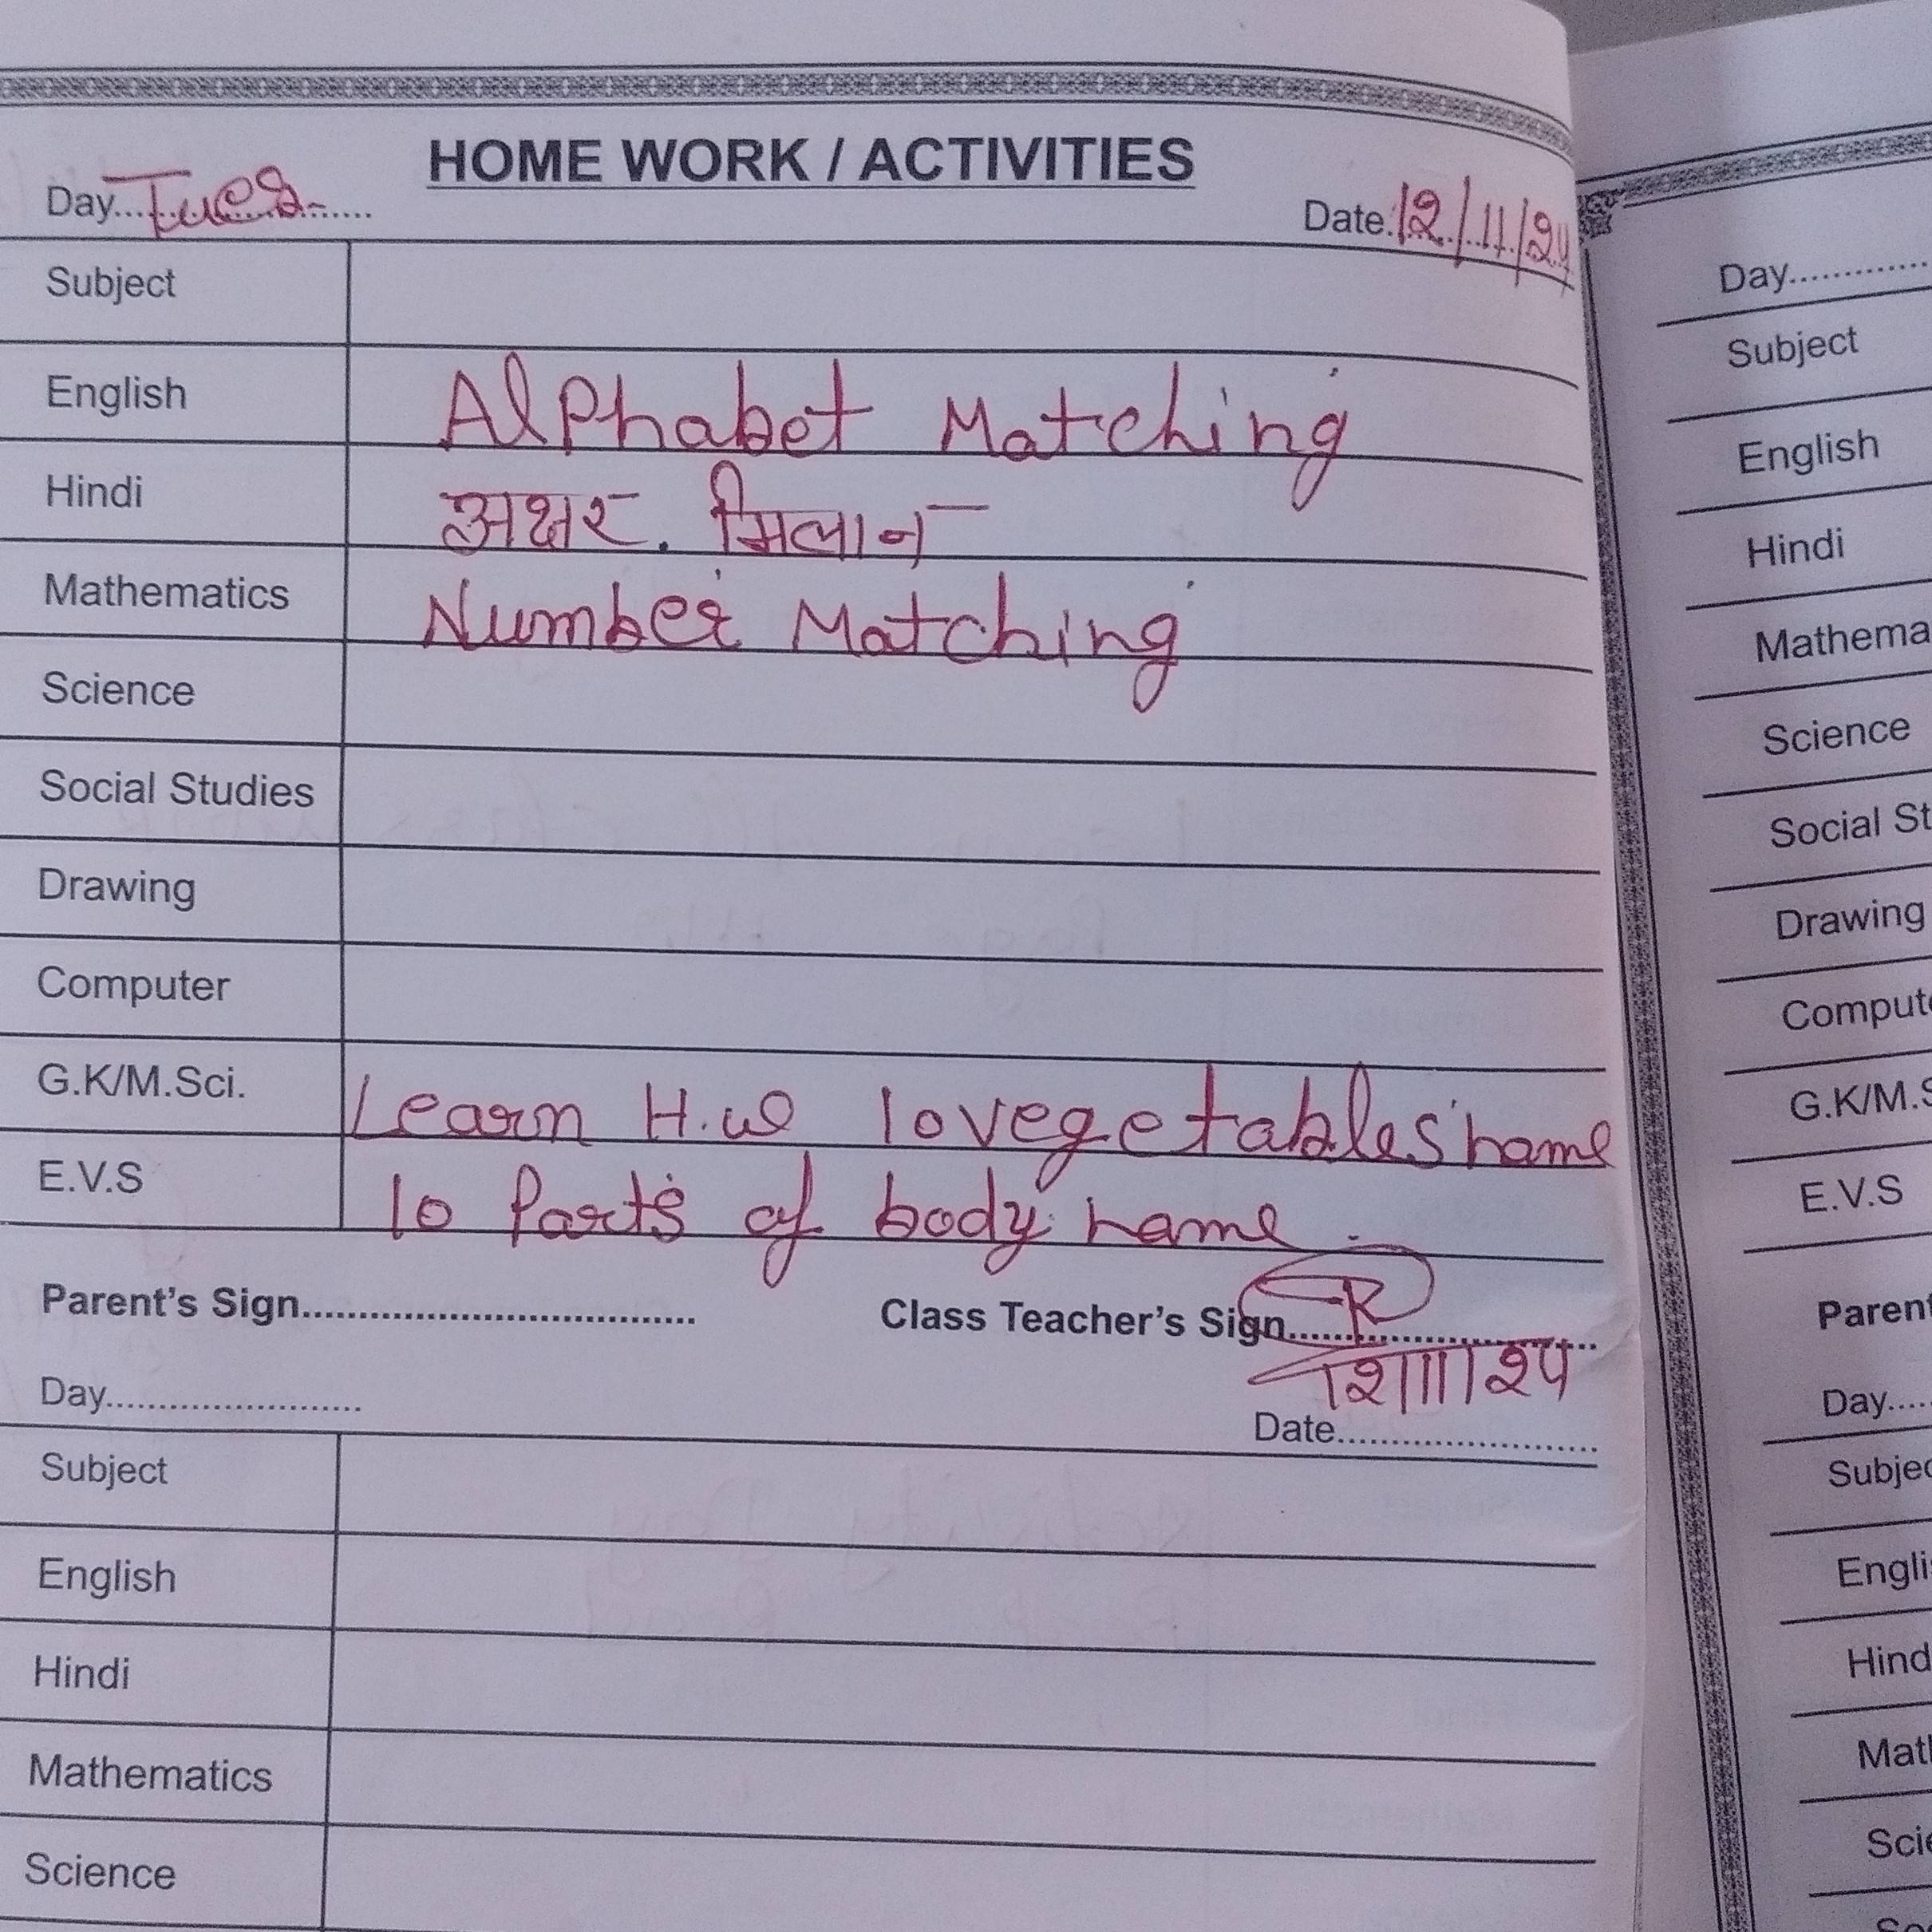 HOME WORK / ACTIVITIES
Day.....Tues.......
Date.12/11/24
Subject
English Alphabet Matching
Hindi अक्षर. मिलान
Mathematics Number Matching
Science
Social Studies
Drawing
Computer
G.K/M.Sci. Learn H.w 10 vegetables name
E.V.S 10 Parts of body name.
Parent's Sign..................................
Class Teacher's Sign.............................
12/11/24
Day.......................
Date.......................
Subject
English
Hindi
Mathematics
Science
Day.............
Subject
English
Hindi
Mathema
Science
Social St
Drawing
Compute
G.K/M.S
E.V.S
Parent
Day....
Subjec
Englis
Hind
Math
Scie